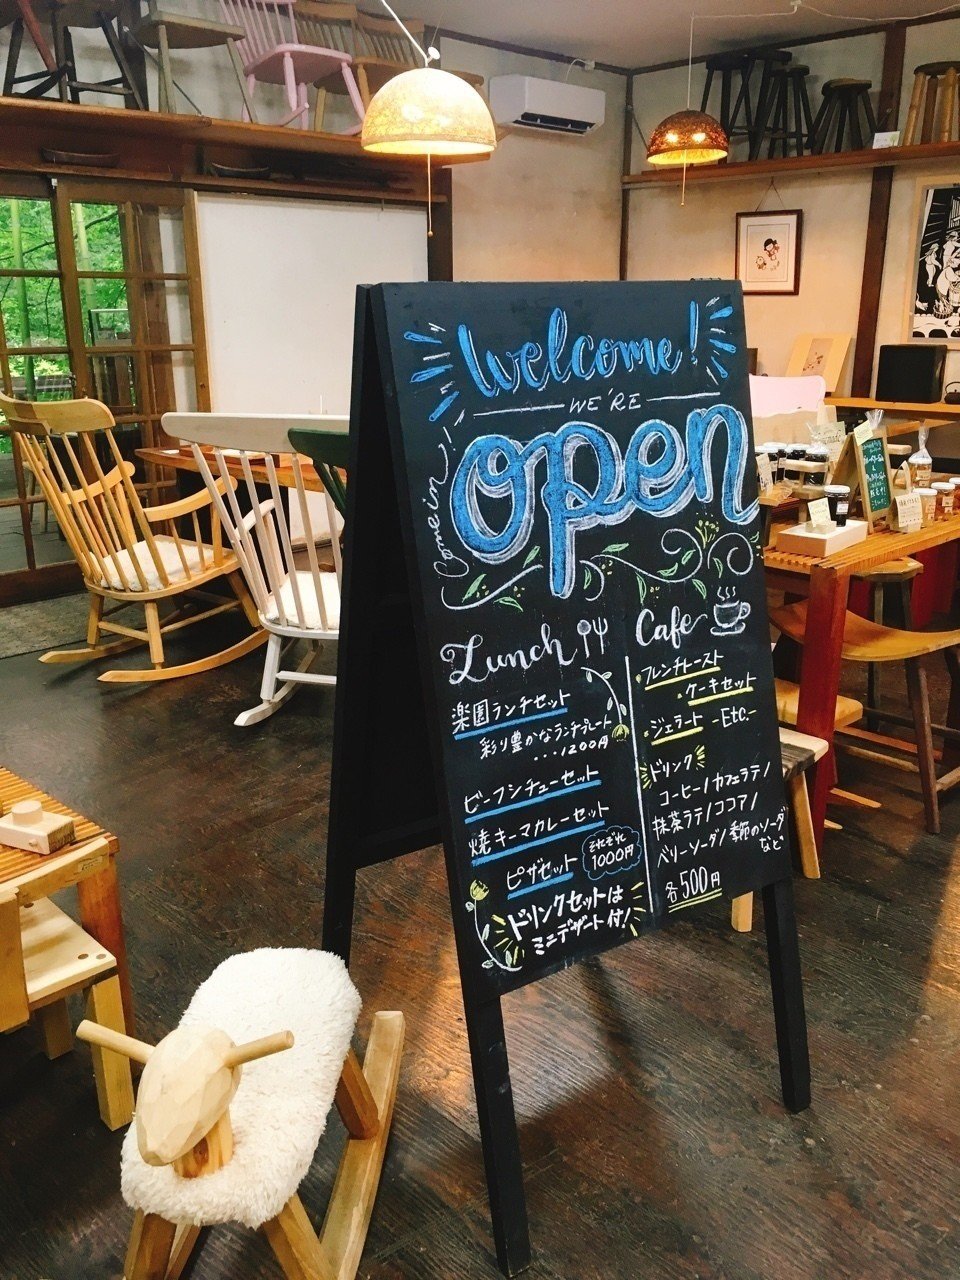 Welcome!
WE'RE
Open
Come in!
Lunch
楽園ランチセット
彩り豊かなランチプレート
...1200円
ビーフシチューセット
焼キーマカレーセット
ピザセット
それぞれ
1000円
ドリンクセットは
ミニデザート付!
Cafe
・フレンチトースト
・ケーキセット
・ジェラート -Etc.-
ドリンク
コーヒー/カフェラテ/
抹茶ラテ/ココア/
ベリーソーダ/季節のソーダ
など
各500円